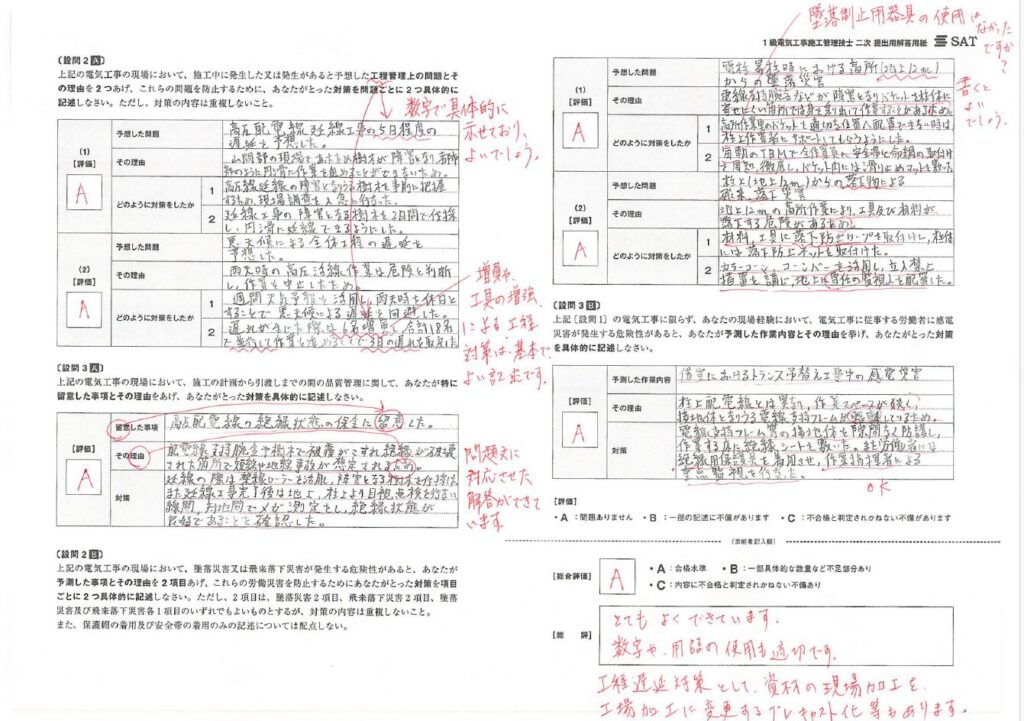 墜落制止用器具の使用は
なかった
ですか?
書くと
よい
でしょう。
1級電気工事施工管理技士 二次 提出用解答用紙 SAT
〔設問2 A〕
上記の電気工事の現場において、施工中に発生した又は発生があると予想した工程管理上の問題とそ
の理由を2つあげ、これらの問題を防止するために、あなたがとった対策を問題ごとに2つ具体的に
記述しなさい。ただし、対策の内容は重複しないこと。
数字で具体的に
示せており、
よいでしょう。
(1)
[評価]
A
予想した問題
高圧配電線延線工事の5日程度の
遅延を予想した。
その理由
山間部の現場であるため樹木が障害となり
円滑に作業を進めることができないため。
どのように対策をしたか
1
高圧延線の障害となりうる樹木を事前に把握
するため、現場調査を入念に行なった。
2
延線工事の障害となる樹木を2日間で伐採
し、円滑に延線できるようにした。
(2)
[評価]
A
予想した問題
悪天候による全体工程の遅延を
予想した。
その理由
雨天時の高圧活線作業は危険と判断
し、作業を中止したため。
どのように対策をしたか
1
週間天気予報を活用し、雨天時を休日と
することで悪天候による遅延を回避した。
2
遅れが生じた際は6名増員し、合計18名
で並行して作業を進めることで3日の遅れを取戻した
増員や、
工具の増強
による工程
対策は、基本で、
よい記述です。
〔設問3 A〕
上記の電気工事の現場において、施工の計画から引渡しまでの間の品質管理に関して、あなたが特に
留意した事項とその理由をあげ、あなたがとった対策を具体的に記述しなさい。
[評価]
A
留意した事項
高圧配電線の絶縁状態の保全に留意した。
その理由
配電線支持腕金や樹木で被覆がこすれ絶縁が破壊
された箇所で短絡や地絡事故が想定されるため。
対策
延線の際は架線ローラーを活用し、障害となる樹木を伐採した。
また延線工事完了後は地上、柱上より目視点検を行ない
線間、対地間でメガ測定をし、絶縁状態が
良好であることを確認した。
問題文に
対応させた
解答ができて
います。
〔設問2 B〕
上記の電気工事の現場において、墜落災害又は飛来落下災害が発生する危険性があると、あなたが
予測した事項とその理由を2項目あげ、これらの労働災害を防止するためにあなたがとった対策を項目
ごとに2つ具体的に記述しなさい。ただし、2項目は、墜落災害2項目、飛来落下災害2項目、墜落
災害及び飛来落下災害各1項目のいずれでもよいものとするが、対策の内容は重複しないこと。
また、保護帽の着用及び安全帯の着用のみの記述については配点しない。
(1)
[評価]
A
予想した問題
電柱昇柱時における高所(地上12m)
からの墜落災害
その理由
電線支持腕金などが障害となりバケットを柱体に
寄せにくい箇所では身を乗り出して作業することがあるため。
どのように対策をしたか
1
高所作業車のバケットを適切な位置へ配置できない時は
柱上作業者にサポートしてもらうようにした。
2
毎朝のTBMで全作業員に安全帯と命綱の取付け
を周知、徹底し、バケット内には滑り止めマットを敷いた
(2)
[評価]
A
予想した問題
柱上(地上12m)からの落下物による
飛来、落下災害
その理由
地上12mの高所作業により、工具及び材料が
落下する危険があるため。
どのように対策をしたか
1
材料、工具に落下防止ロープを取付けし、柱体
には落下防止ネットを取付けた。
2
カラーコーン、コーンバーを活用し、立入禁止
措置を講じ、地上に専任の監視人を配置した。
〔設問3 B〕
上記[設問1]の電気工事に限らず、あなたの現場経験において、電気工事に従事する労働者に感電
災害が発生する危険性があると、あなたが予測した作業内容とその理由を挙げ、あなたがとった対策
を具体的に記述しなさい。
[評価]
A
予測した作業内容
借室におけるトランス吊替え工事中の感電災害
その理由
柱上配電線とは異なり、作業スペースが狭く、
接地体となりうる電線支持フレームが密集しているため。
対策
電線支持フレーム等の接地体を隙間なく防護し、
作業する床に絶縁シートを敷いた。また労働者には
絶縁用保護具を着用させ、作業指揮者による
重点監視を行なった。
OK
[評価]
・A:問題ありません ・B:一部の記述に不備があります ・C:不合格と判定されかねない不備があります
(添削者記入欄)
[総合評価]
A
・A:合格水準 ・B:一部具体的な数量など不足部分あり
・C:内容に不合格と判定されかねない不備あり
[総 評]
とてもよくできています。
数字や、用語の使用も適切です。
工程遅延対策として、資材の現場加工を、
工場加工に変更するプレキャスト化等もあります。